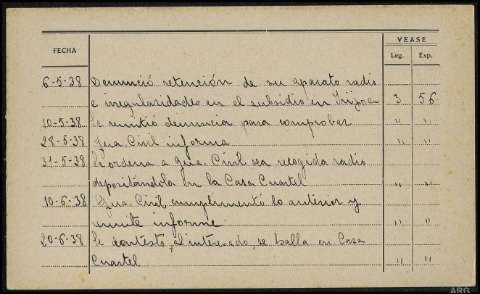 VEASE
FECHA Leg. Exp.
6-5-38 Denunció retención de su aparato radio
e irregularidades en el subsidio en Trijoa 3 56
10-5-38 Se remitió denuncia para comprobar " "
28-5-38 Gua. Civil informa " "
31-5-38 Se ordena a Gua. Civil sea recogida radio
depositándola en la Casa Cuartel " "
10-6-38 Gua. Civil cumplimentó lo anterior y
emite informe " "
20-6-38 Se contestó, al interesado, se halla en Casa
Cuartel " "
ARG